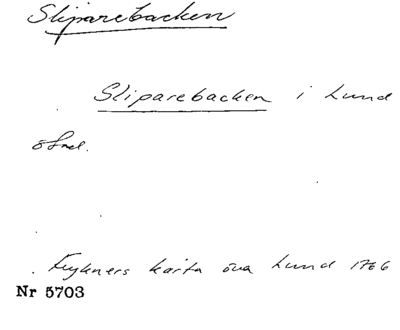 Sliparebacken
Sliparebacken i Lund
karta öva Lund 1766
Nr 5703